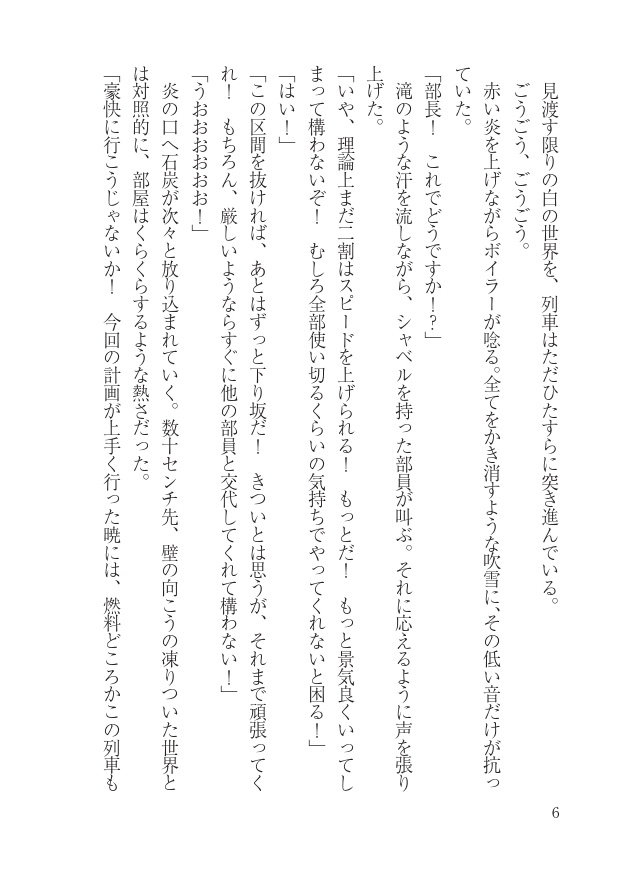 見渡す限りの白の世界を、列車はただひたすらに突き進んでいる。
　ごうごう、ごうごう。
　赤い炎を上げながらボイラーが唸る。全てをかき消すような吹雪に、その低い音だけが抗っ
ていた。
「部長！　これでどうですか！？」
　滝のような汗を流しながら、シャベルを持った部員が叫ぶ。それに応えるように声を張り
上げた。
「いや、理論上まだ二割はスピードを上げられる！　もっとだ！　もっと景気良くいってし
まって構わないぞ！　むしろ全部使い切るくらいの気持ちでやってくれないと困る！」
「はい！」
「この区間を抜ければ、あとはずっと下り坂だ！　きついとは思うが、それまで頑張ってく
れ！　もちろん、厳しいようならすぐに他の部員と交代してくれて構わない！」
「うおおおおおお！」
　炎の口へ石炭が次々と放り込まれていく。数十センチ先、壁の向こうの凍りついた世界と
は対照的に、部屋はくらくらするような熱さだった。
「豪快に行こうじゃないか！　今回の計画が上手く行った暁には、燃料どころかこの列車も
6